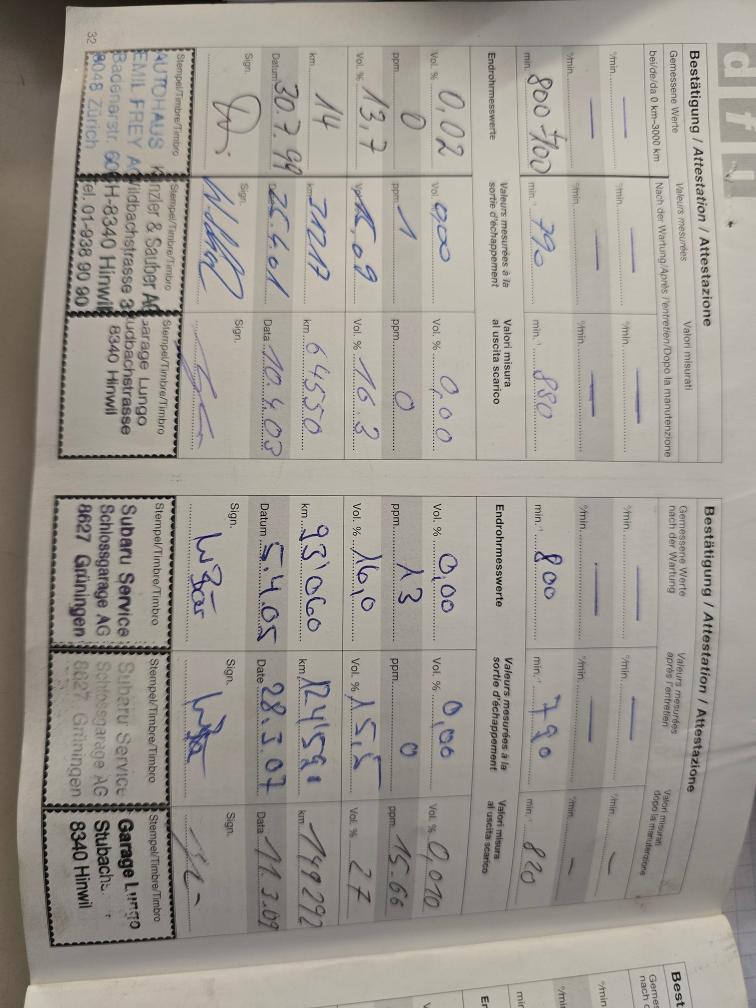 Bestätigung / Attestation / Attestazione
Gemessene Werte
bei/de/da 0 km–3000 km
Valeurs mesurées
Valori misurati
Nach der Wartung/Après l'entretien/Dopo la manutenzione
°/min. — °/min. — °/min. —
°/min. — °/min. — °/min. —
min. 800-700 min.⁻¹ 790 min.⁻¹ 880
Endrohrmesswerte
Valeurs mesurées à la
sortie d'échappement
Valori misura
al uscita scarico
Vol. % 0,02 Vol. 0,00 Vol. % 0,00
ppm. 0 ppm. 1 ppm. 0
Vol. % 13,7 15,09 Vol. % 16.3
km 14 km 31217 km 64550
Datum 30.7.99 25.4.01 Data 10.4.03
Sign. Sign. Sign.
Stempel/Timbre/Timbro Stempel/Timbre/Timbro Stempel/Timbre/Timbro
AUTOHAUS
EMIL FREY AG
Badenerstr. 600
8048 Zürich
Künzler & Sauber AG
Wildbachstrasse 3
CH-8340 Hinwil
Tel. 01-938 90 90
Garage Lungo
8340 Hinwil
32
Bestätigung / Attestation / Attestazione
Gemessene Werte
nach der Wartung
Valeurs mesurées
après l'entretien
Valori misurati
dopo la manutenzione
°/min. — °/min. — °/min. —
°/min. — °/min. — °/min. —
min.⁻¹ 800 min.⁻¹ 790 min.⁻¹ 820
Endrohrmesswerte
Valeurs mesurées à la
sortie d'échappement
Valori misura
al uscita scarico
Vol. % 0,00 Vol. % 0,00 Vol. % 0,010
ppm. 13 ppm. 0 ppm. 15.66
Vol. % 16,0 Vol. % 15,5 Vol. % 27
km 93'060 km 124'591 km 149292
Datum 5.4.05 Date 28.3.07 Data 11.3.09
Sign. Sign. Sign.
Stempel/Timbre/Timbro Stempel/Timbre/Timbro Stempel/Timbre/Timbro
Subaru Service
Schlossgarage AG
8627 Grüningen
Subaru Service
Schlossgarage AG
8627 Grüningen
Garage Lungo
8340 Hinwil